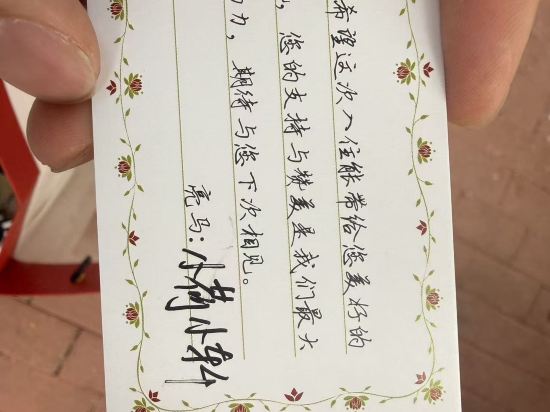 希望这次入住能带给您美好的
，您的支持与赞美是我们最大
力，期待与您下次相见。
亮马：小荷小轩